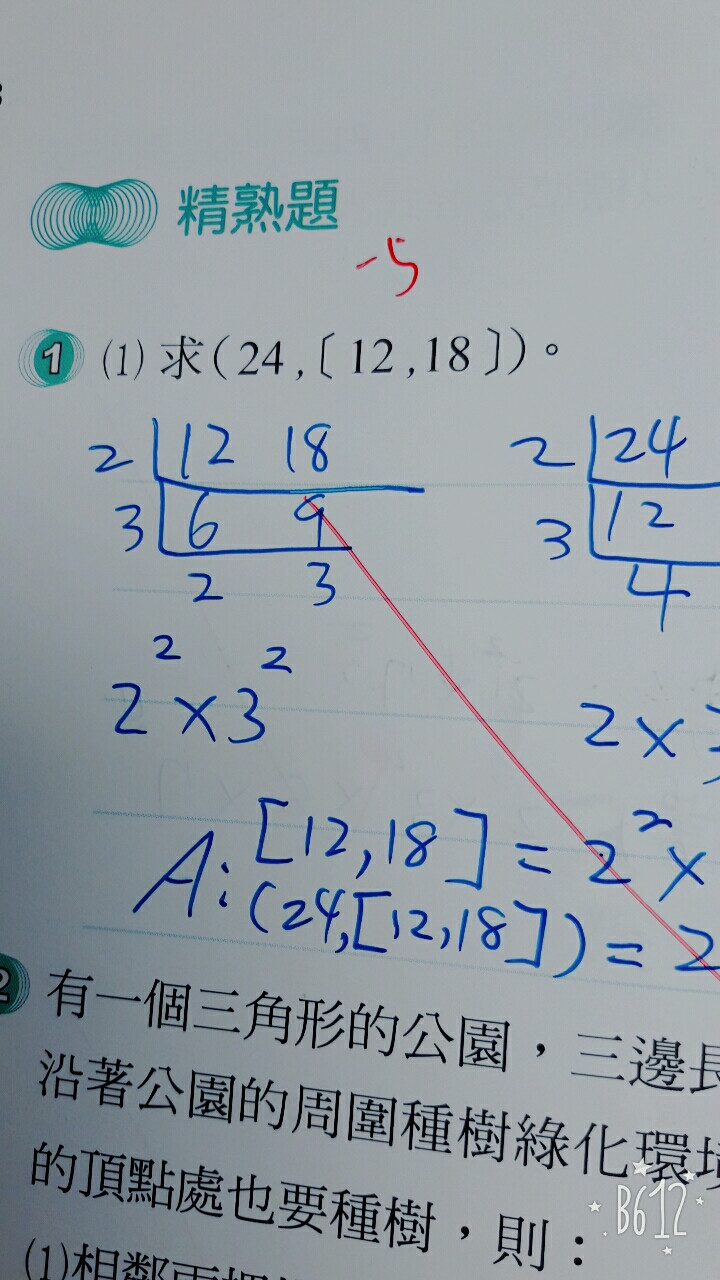 精熟題
-5
1 (1) 求(24,〔12,18〕)。
2 12 18
3 6 9
2 3
2 24
3 12
4
2² × 3²
2 ×
A: [12,18] = 2² ×
(24,[12,18]) = 2
2 有一個三角形的公園，三邊長
沿著公園的周圍種樹綠化環境
的頂點處也要種樹，則：
(1)相鄰兩
B612